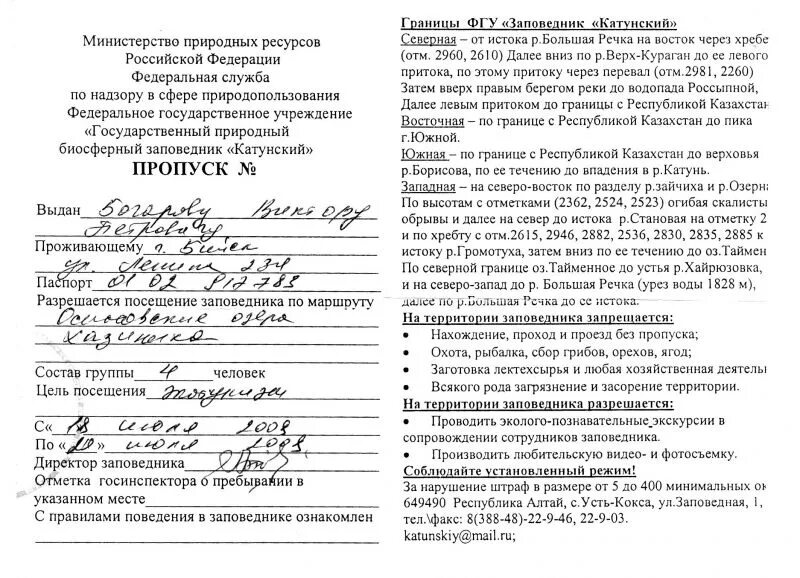 Министерство природных ресурсов
Российской Федерации
Федеральная служба
по надзору в сфере природопользования
Федеральное государственное учреждение
«Государственный природный
биосферный заповедник «Катунский»
ПРОПУСК №
Выдан Виктору
Петровичу
Проживающему г. Бийск
ул. Ленина 234
Паспорт 01 02 917783
Разрешается посещение заповедника по маршруту
озера
Состав группы 4 человек
Цель посещения экскурсия
С« 18 июля 2009
По « 20 » июля 2009
Директор заповедника
Отметка госинспектора о пребывании в
указанном месте
С правилами поведения в заповеднике ознакомлен
Границы ФГУ «Заповедник «Катунский»
Северная – от истока р.Большая Речка на восток через хребе
(отм. 2960, 2610) Далее вниз по р.Верх-Кураган до ее левого
притока, по этому притоку через перевал (отм.2981, 2260)
Затем вверх правым берегом реки до водопада Россыпной,
Далее левым притоком до границы с Республикой Казахстан
Восточная – по границе с Республикой Казахстан до пика
г.Южной.
Южная – по границе с Республикой Казахстан до верховья
р.Борисова, по ее течению до впадения в р.Катунь.
Западная – на северо-восток по разделу р.зайчиха и р.Озерна
По высотам с отметками (2362, 2524, 2523) огибая скалисты
обрывы и далее на север до истока р.Становая на отметку 2
и по хребту с отм.2615, 2946, 2882, 2536, 2830, 2835, 2885 к
истоку р.Громотуха, затем вниз по ее течению до оз.Таймен
По северной границе оз.Тайменное до устья р.Хайрюзовка,
и на северо-запад до р. Большая Речка (урез воды 1828 м),
далее по р.Большая Речка до ее истока.
На территории заповедника запрещается:
• Нахождение, проход и проезд без пропуска;
• Охота, рыбалка, сбор грибов, орехов, ягод;
• Заготовка лектехсырья и любая хозяйственная деятельн
• Всякого рода загрязнение и засорение территории.
На территории заповедника разрешается:
• Проводить эколого-познавательные экскурсии в
сопровождении сотрудников заповедника.
• Производить любительскую видео- и фотосъемку.
Соблюдайте установленный режим!
За нарушение штраф в размере от 5 до 400 минимальных ок
649490 Республика Алтай, с.Усть-Кокса, ул.Заповедная, 1,
тел.\факс: 8(388-48)-22-9-46, 22-9-03.
katunskiy@mail.ru;